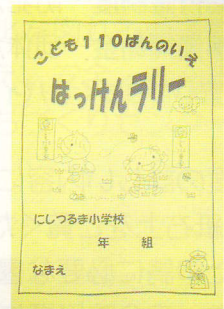 こども110ばんのいえ
はっけんラリー
にしつるま小学校
年　組
なまえ